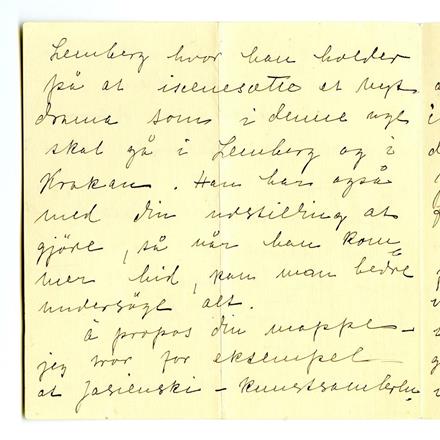 Lemberg hvor han holder
på at iscenesætte et nyt
drama som i denne uge
skal gå i Lemberg og i
Krakau. Han har også
med din udstilling at
gjöre, så når han kom
mer hid, kan man bedre
undersöge alt.
À propos din mappe –
jeg tror for eksempel
at Jasienski – kunstsamleren